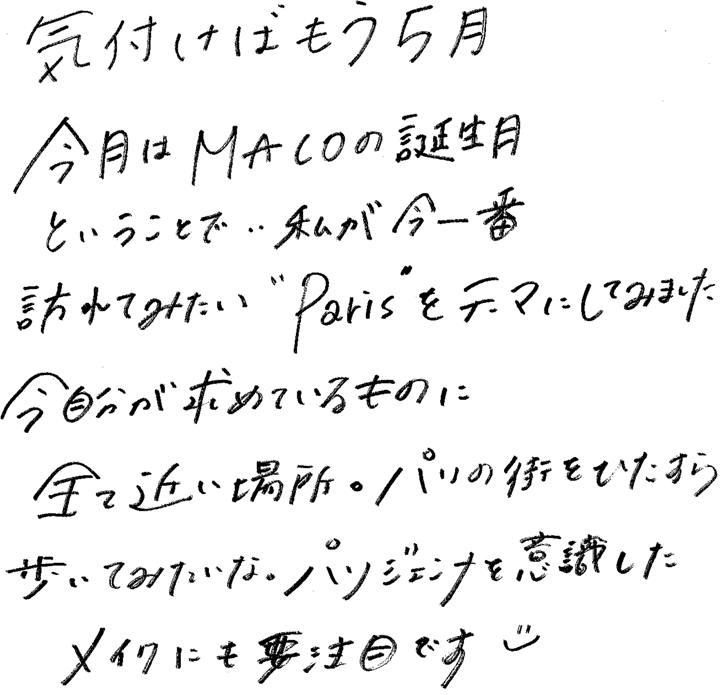 気付けばもう5月
今月はMACOの誕生月
ということで‥私が今一番
訪れてみたい"Paris"をテーマにしてみました
今自分が求めているものに
全て近い場所。パリの街をひたすら
歩いてみたいな。パリジェンヌを意識した
メイクにも要注目です